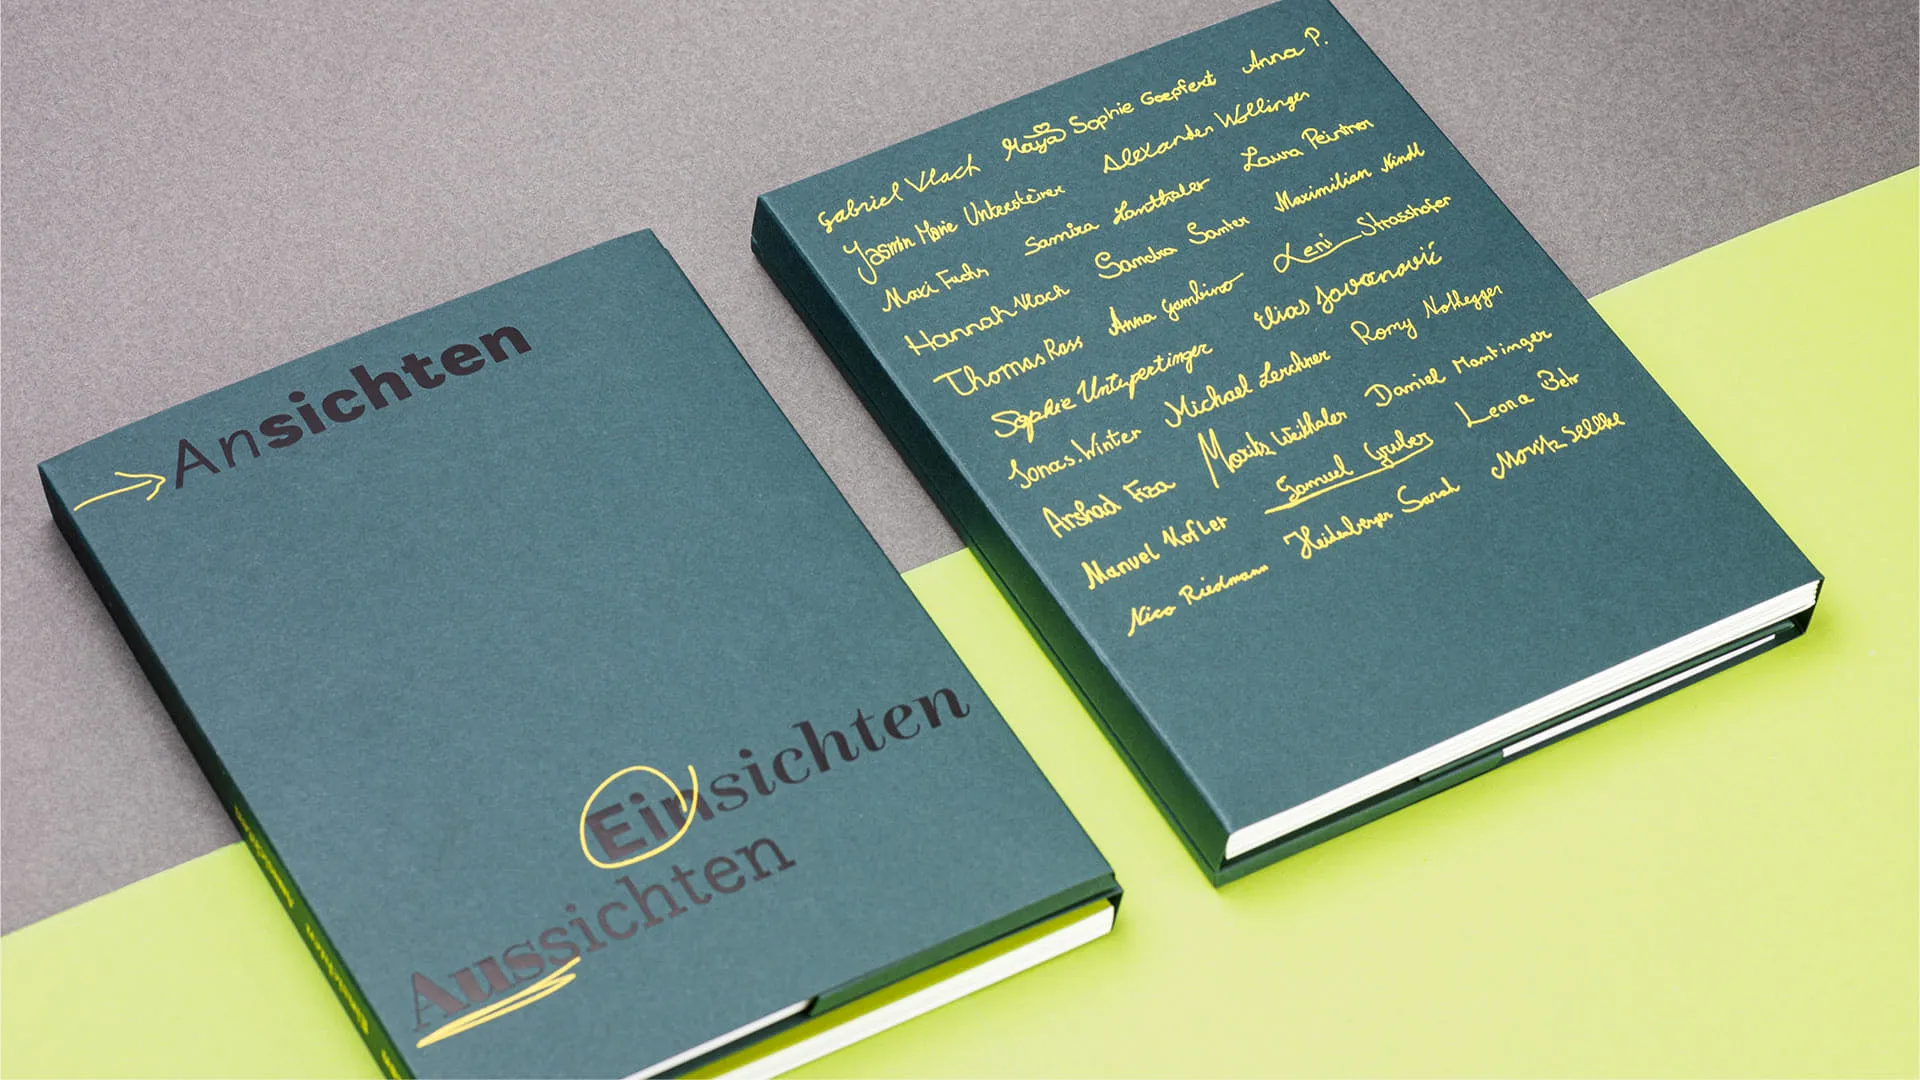 Ansichten
Einsichten
Aussichten
Gabriel Vlach Maja Sophie Goepfert Anna P.
Jasmin Marie Untersteiner Alexander Wollinger
Maxi Fuchs Samira Hanthaler Laura Peintner
Hannah Vlach Sandra Santer Maximilian Nindl
Thomas Rass Anna Gambino Leni Strasshofer
Sophie Unterpertinger Elias Jovanović
Jonas Winter Michael Lerchner Romy Nothegger
Arshad Fiza Moritz Weithaler Daniel
Manuel Kofler Samuel Gruber Leona
Nico Riedmann Heidenberger Sarah Moritz Sellke